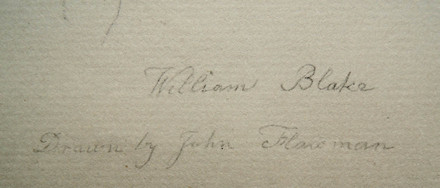 William Blake
Drawn by John Flaxman